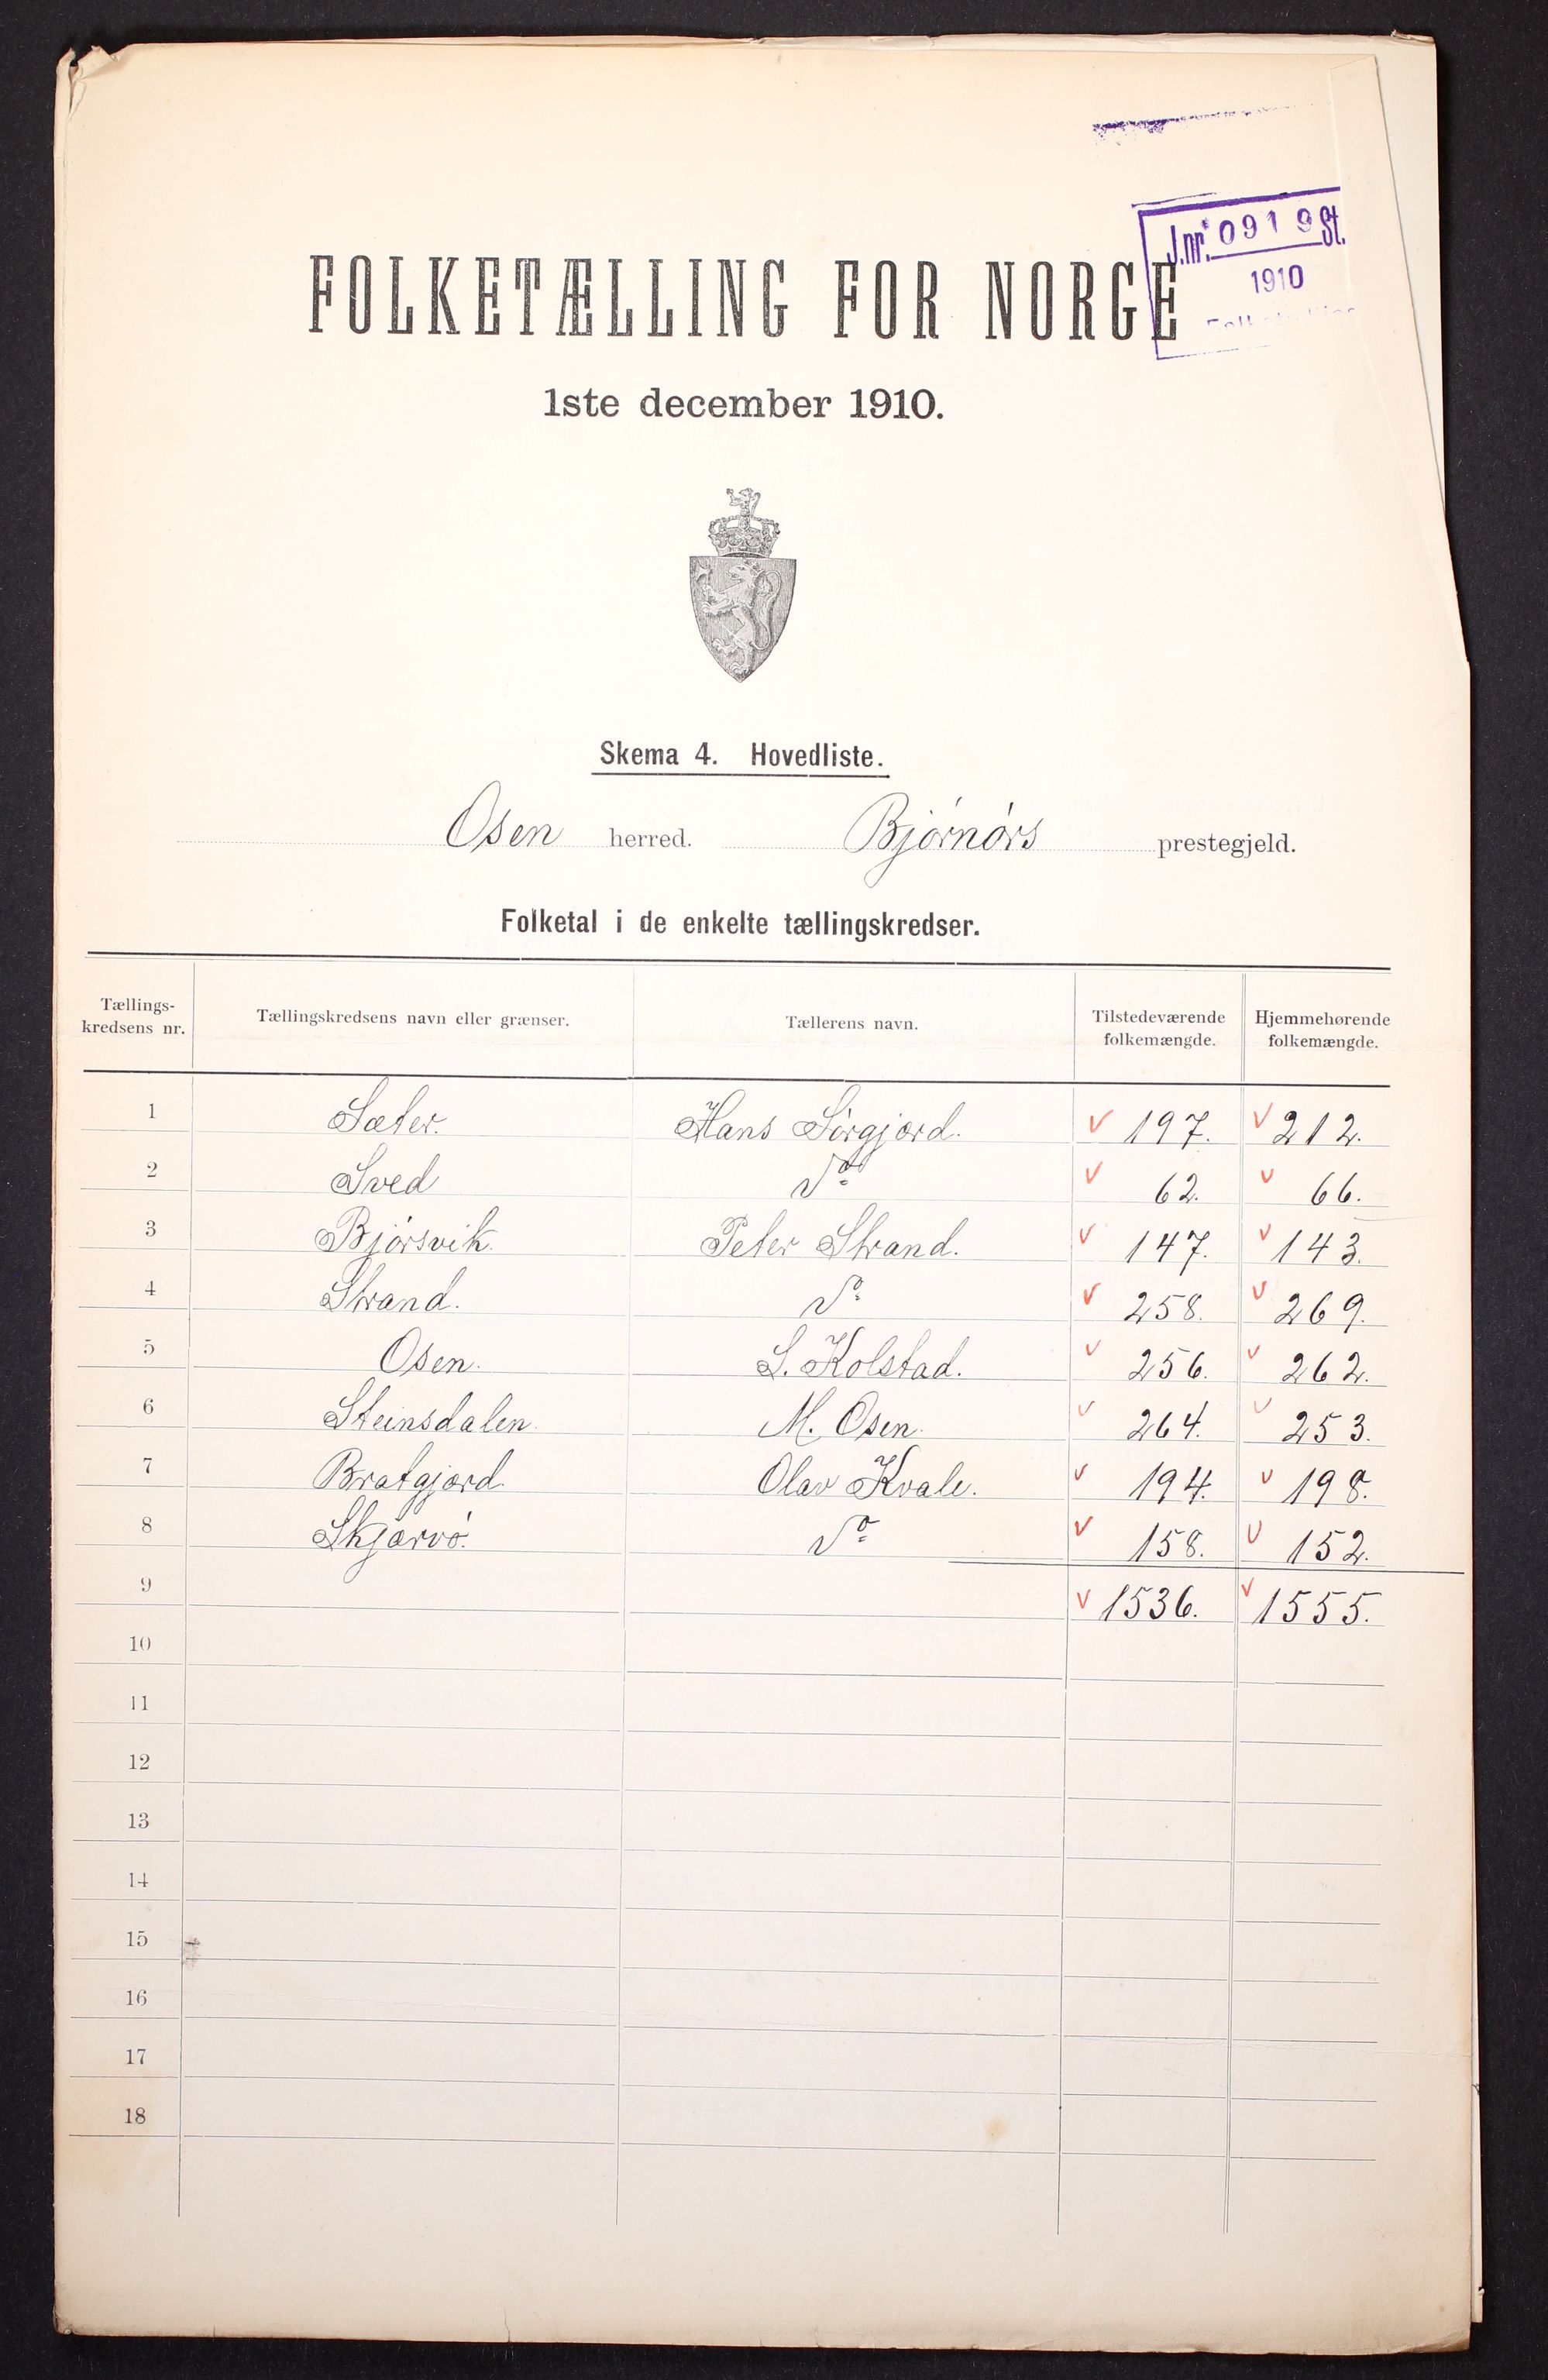 J.nr. 0919 St.
1910
FOLKETÆLLING FOR NORGE
1ste december 1910.
Skema 4. Hovedliste.
Osen herred. Bjørnørs prestegjeld.
Folketal i de enkelte tællingskredser.
Tællings-kredsens nr. Tællingskredsens navn eller grænser. Tællerens navn. Tilstedeværende folkemængde. Hjemmehørende folkemængde.
1 Sæter. Hans Sørgjærd. v 197. v 212.
2 Sved Do v 62. v 66.
3 Bjørsvik. Peter Strand. v 147. v 143.
4 Strand. Do v 258. v 269.
5 Osen. L. Kolstad. v 256. v 262.
6 Steinsdalen. M. Osen. v 264. v 253.
7 Bratgjærd. Olav Kvale. v 194. v 198.
8 Skjærvø. Do v 158. v 152.
9 v 1536. v 1555.
10
11
12
13
14
15
16
17
18